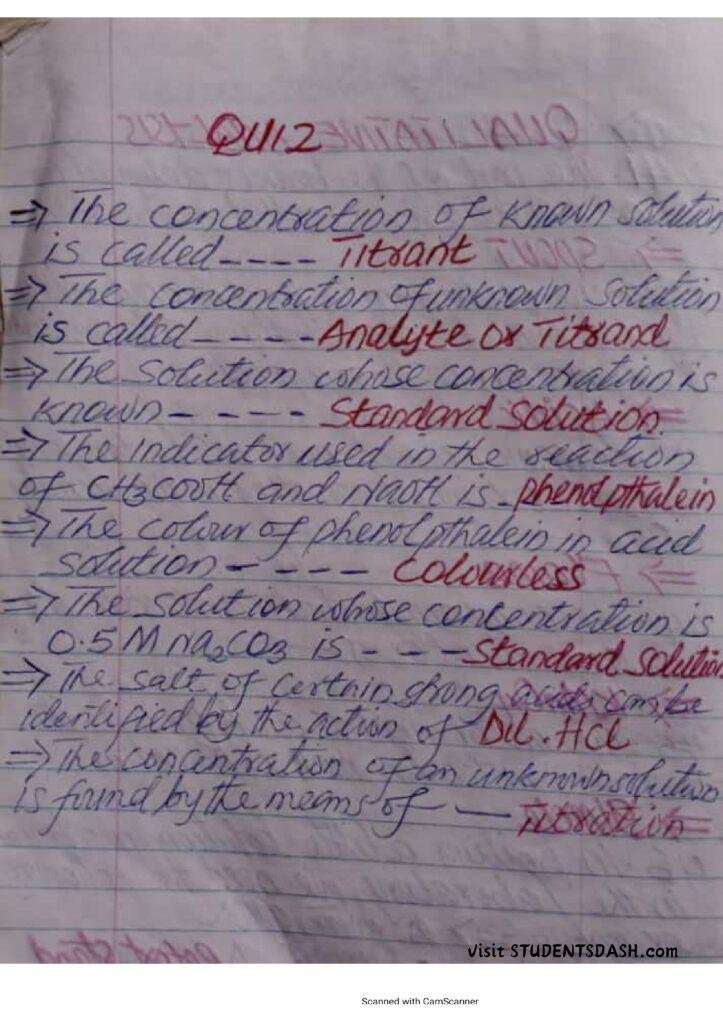 QUIZ
⇒ The concentration of known solution
is called---- Titrant
⇒ The concentration of unknown solution
is called----- Analyte or Titrand
⇒ The solution whose concentration is
known----- Standard solution
⇒ The indicator used in the reaction
of CH3COOH and NaOH is - phenolpthalein
⇒ The colour of phenolpthalein in acid
solution---- Colourless
⇒ The solution whose concentration is
0.5 M na2CO3 is --- Standard solution
⇒ The salt of certain strong acids can be
identified by the action of Dil. HCl
⇒ The concentration of an unknown solution
is found by the means of -- Titration
Visit STUDENTSDASH.com
Scanned with CamScanner